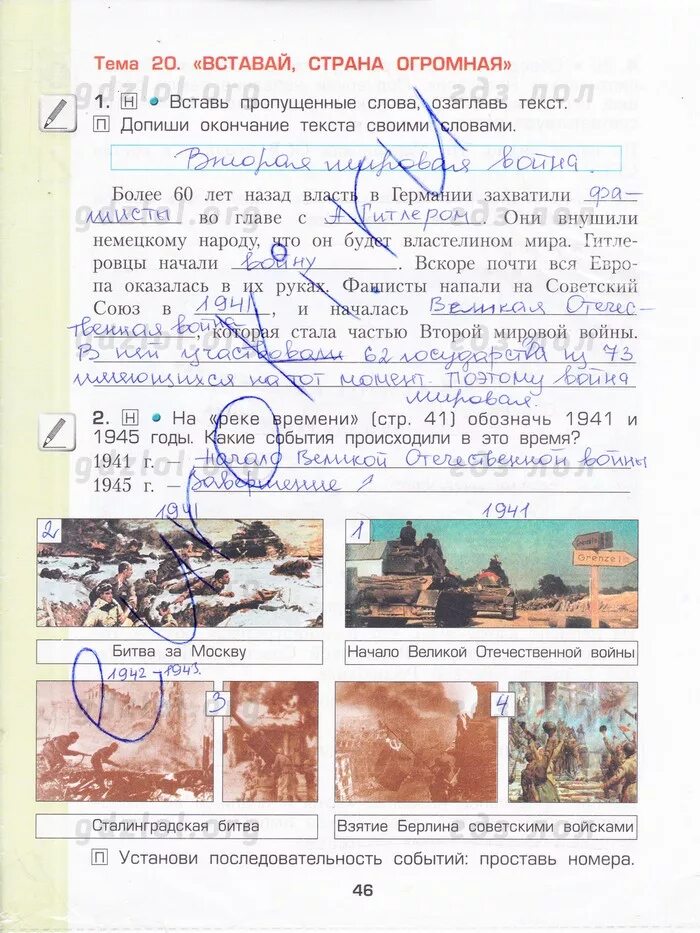 Тема 20. «ВСТАВАЙ, СТРАНА ОГРОМНАЯ»
gdzlol.org гдз лол
1. Н • Вставь пропущенные слова, озаглавь текст.
П Допиши окончание текста своими словами.
Вторая мировая война.
Более 60 лет назад власть в Германии захватили фа-
шисты во главе с А. Гитлером. Они внушили
gdzlol.org гдз лол
немецкому народу, что он будет властелином мира. Гитле-
ровцы начали войну. Вскоре почти вся Евро-
па оказалась в их руках. Фашисты напали на Советский
Союз в 1941, и началась Великая Отечес-
твенная война, которая стала частью Второй мировой войны.
В ней участвовали 62 государства из 73
имеющихся на тот момент. Поэтому война
мировая.
2. Н • На «реке времени» (стр. 41) обозначь 1941 и
1945 годы. Какие события происходили в это время?
1941 г. – Начало Великой Отечественной войны
gdzlol.org гдз лол
1945 г. – Завершение
1941 1941
2 1
Grenze
Битва за Москву Начало Великой Отечественной войны
1942-1943.
3 4
gdzlol.org гдз лол
Сталинградская битва Взятие Берлина советскими войсками
П Установи последовательность событий: проставь номера.
46